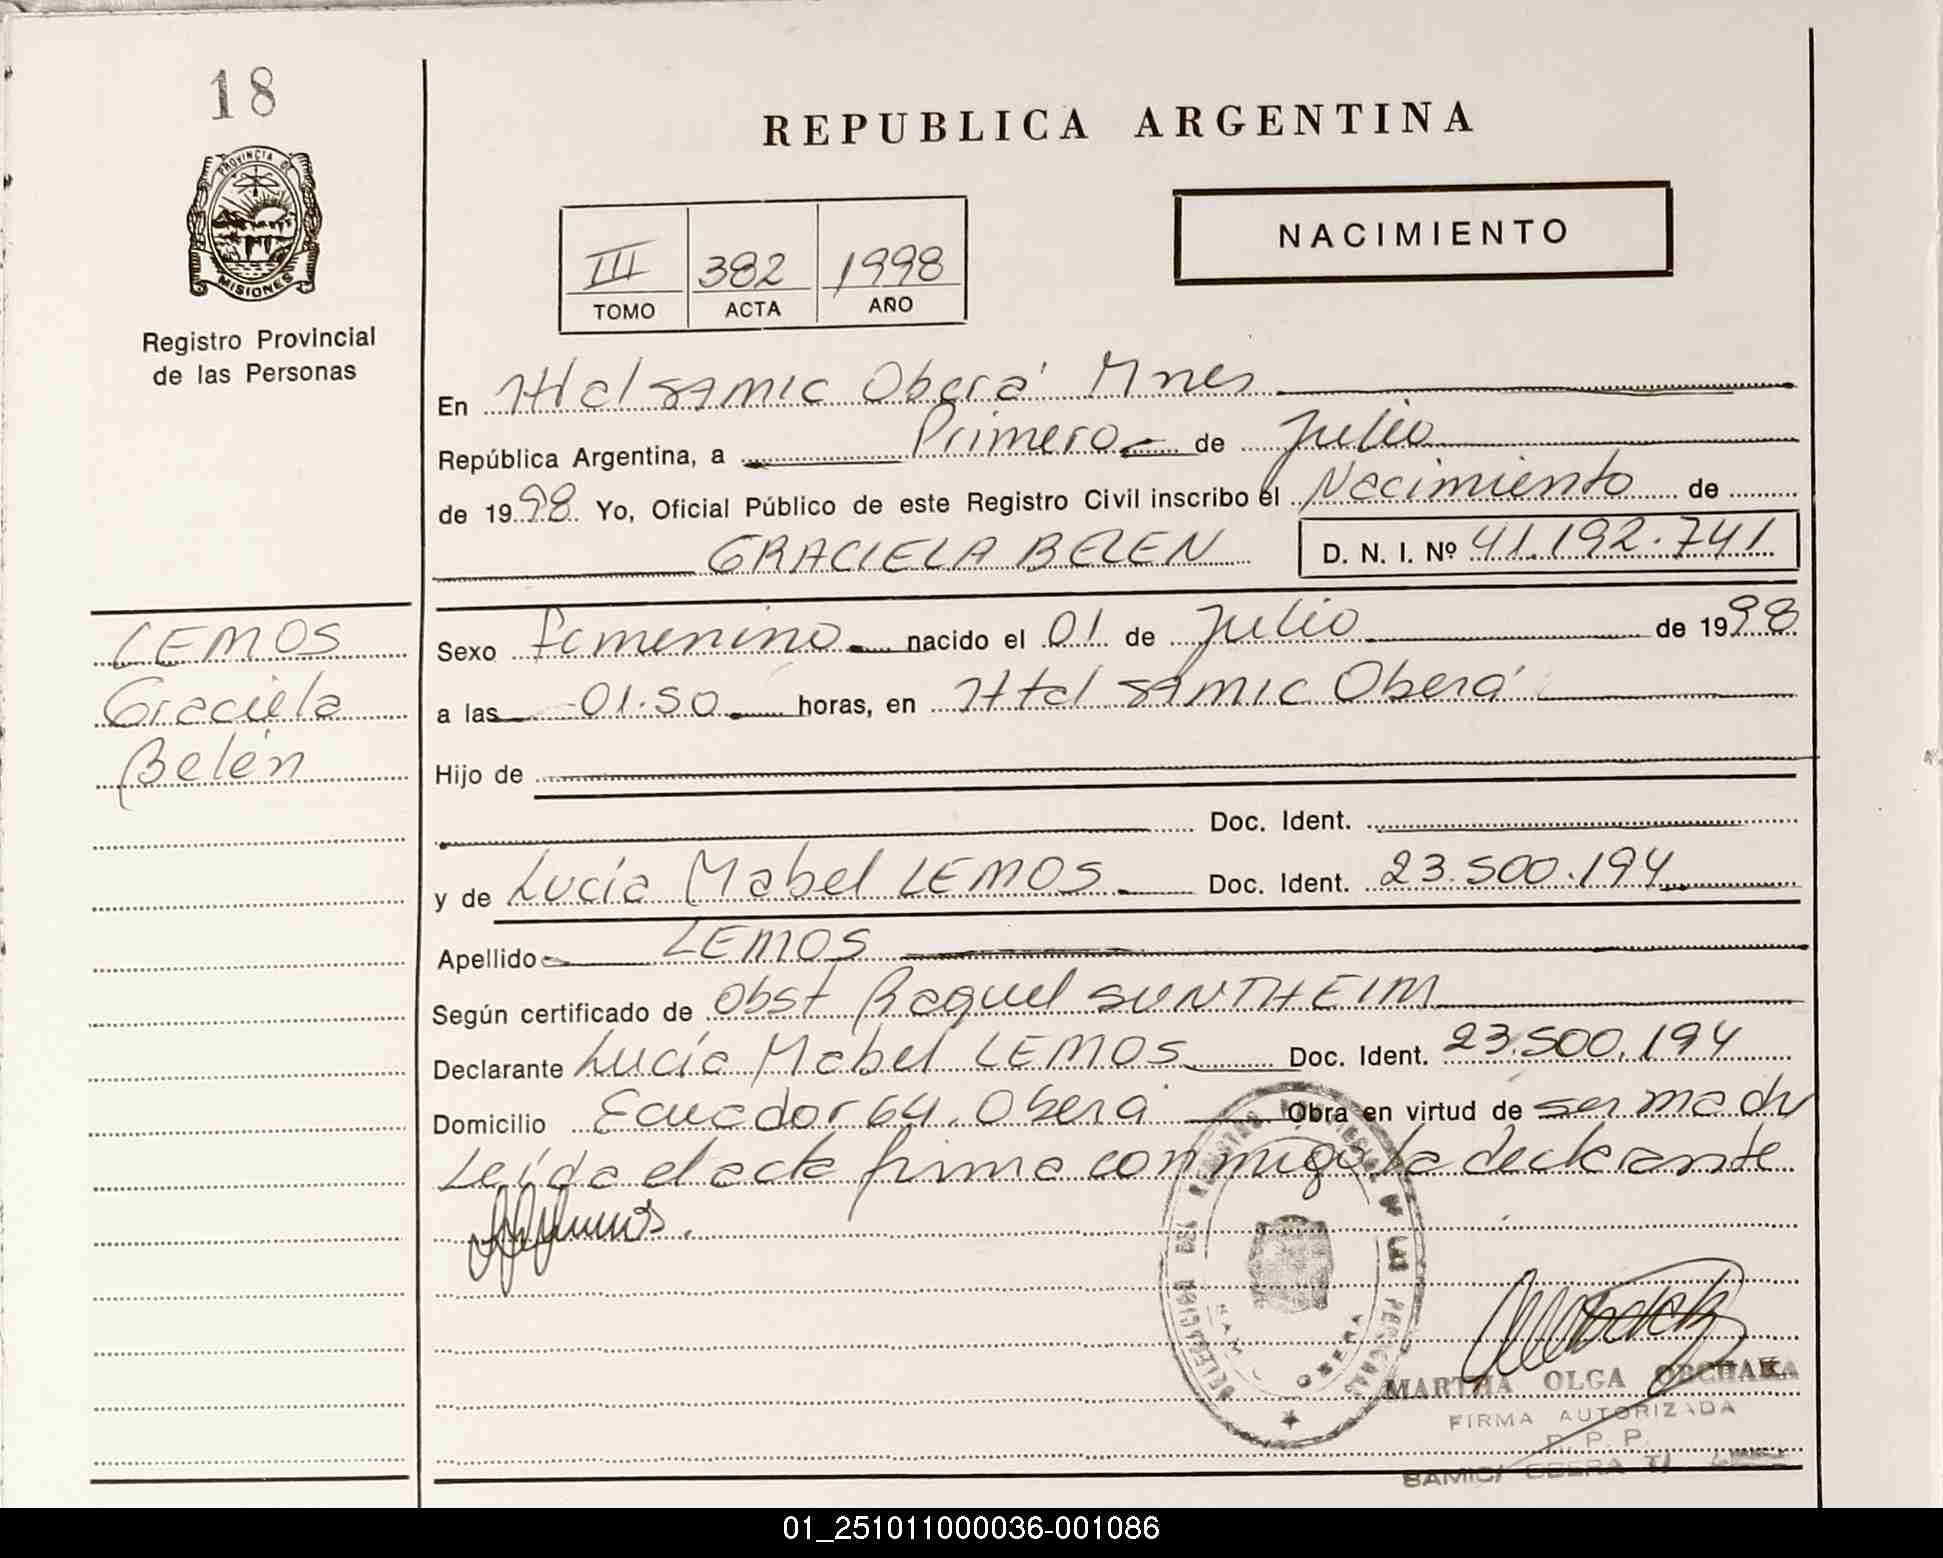 18
REPUBLICA ARGENTINA
PROVINCIA DE
MISIONES
Registro Provincial
de las Personas
NACIMIENTO
III 382 1998
TOMO ACTA AÑO
En Htal SAMIC Oberá Mnes
República Argentina, a Primero de Julio
de 1998 Yo, Oficial Público de este Registro Civil inscribo el Nacimiento de
GRACIELA BELEN D. N. I. Nº 41.192.741
LEMOS
Graciela
Belén
Sexo femenino nacido el 01 de Julio de 1998
a las 01.50 horas, en Htal SAMIC Oberá
Hijo de
Doc. Ident.
y de Lucía Mabel LEMOS Doc. Ident. 23.500.194
Apellido LEMOS
Según certificado de Obst Raquel SUNTHEIM
Declarante Lucía Mabel LEMOS Doc. Ident. 23.500.194
Domicilio Ecuador 64. Oberá Obra en virtud de ser madre
Leída el acta firma conmigo la declarante
DELEGACION DEL REGISTRO PROVINCIAL DE LAS PERSONAS
OBERA
MARTHA OLGA
FIRMA AUTORIZADA
R. P. P.
SAMIC OBERA
01_251011000036-001086